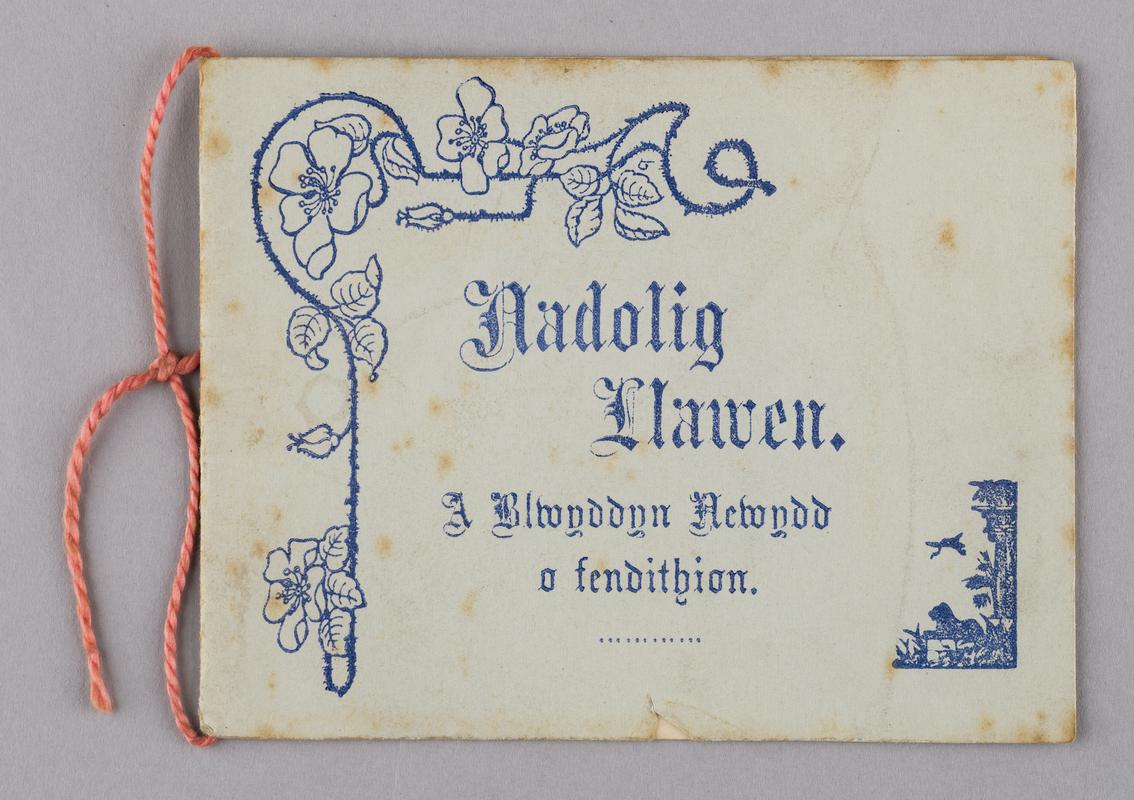 Nadolig
Llawen.
A Blwyddyn Newydd
o fendithion.